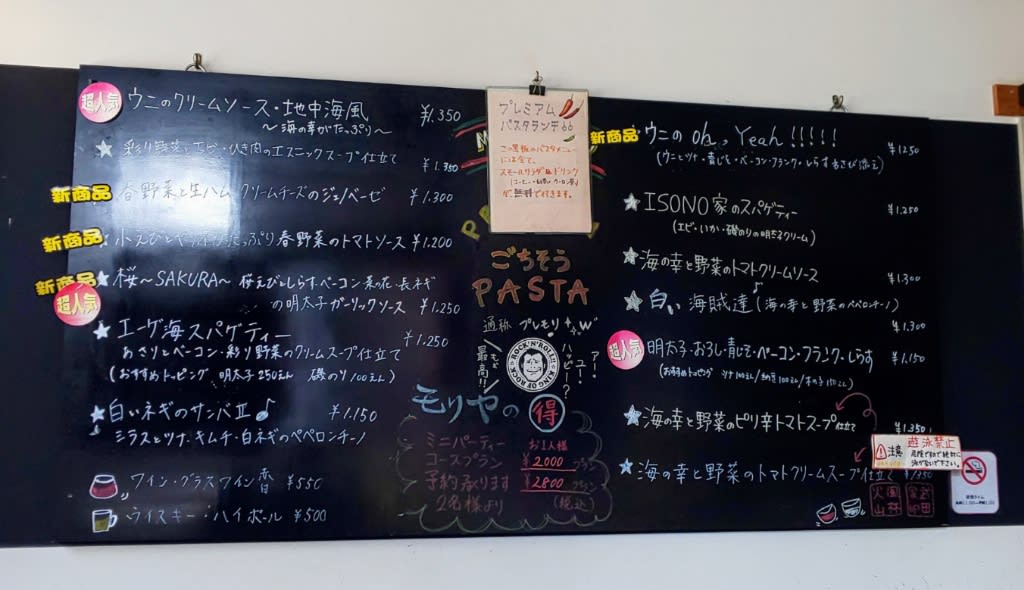 超人気
ウニのクリームソース・地中海風 ¥1.350
～海の幸がたっぷり～
彩り野菜とエビ・ひき肉のエスニックスープ仕立て ¥1.350
新商品
春野菜と生ハム クリームチーズのジェノベーゼ ¥1.300
新商品
小えびと たっぷり春野菜のトマトソース ¥1.200
新商品
超人気
桜～SAKURA～ 桜えび・しらす・ベーコン 菜の花 長ネギ
の明太子ガーリックソース ¥1.250
エーゲ海スパゲティー ¥1.250
あさりとベーコン・彩り野菜のクリームスープ仕立て
(おすすめトッピング 明太子250えん 磯のり100えん)
白いネギのサンバⅡ ¥1.150
シラスとツナ・キムチ・白ネギのペペロンチーノ
ワイン・グラスワイン香 ¥550
ウイスキー・ハイボール ¥500
プレミアム
パスタランチ
この黒板のパスタメニュー
には全て、
スモールサラダ&ドリンク
が、無料で付きます。
ごちそう
PASTA
通称 プレモリ
もぐ
最高!!
ROCK'N'ROLL!!
KING OF ROCK
アー!
ユー!
ハッピー?
モリヤの得
ミニパーティー
コースプラン
予約承ります
2名様より
お1人様
¥2000プラン
¥2800プラン
(税込)
新商品
ウニの oh、Yeah!!!!! ¥1250
(ウニツナ・青じそ・ベーコン・フランク・しらす わさび添え)
ISONO家のスパゲティー ¥1.250
(エビ・いか・磯のりの明太子クリーム)
海の幸と野菜のトマトクリームソース ¥1.300
白い海賊達♪(海の幸と野菜のペペロンチーノ)
¥1.300
超人気
明太子・おろし・青じそ・ベーコン・フランク・しらす ¥1.150
(おすすめトッピング ツナ100えん/納豆100えん/木の子150えん)
海の幸と野菜のピリ辛トマトスープ仕立て ¥1.350
海の幸と野菜のトマトクリームスープ仕立て ¥1.350
注意
遊泳禁止
危険ですので絶対に
泳がないで下さい。
風林
火山
武田